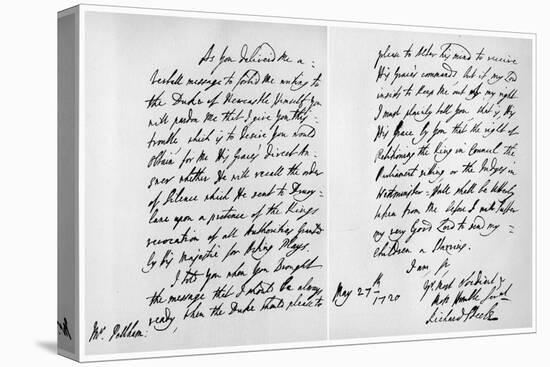 As you delivered me a
verball message to forbid me writing to
the Duke of Newcastle Himself you
will pardon me that I give you this
trouble which is to desire you would
obtain for me His Grace's direct An-
swer whether He will recall the order
of Silence which He sent to Drury-
lane upon a pretence of the Kings
revocation of all Authorities Granted
by his Majestie for Acting Plays.
I told you when you brought
the message that I should be always
ready, when the Duke should please to
Mr. Pellham.
please to Alter his mind to receive
His Grace's commands, but if my Lord
insists to keep me out of my right
I must plainly tell you, that
His Grace by you that the right of
Petitioning the King in Council the
Parliament sitting or the Judges in
Westminster-Hall shall be utterly
taken from me before I will suffer
my very Good Lord to send my
children a Starving.
I am Sr
Yr Most Obedient &
Most Humble Servt
May 27th
1720
Richard Steele